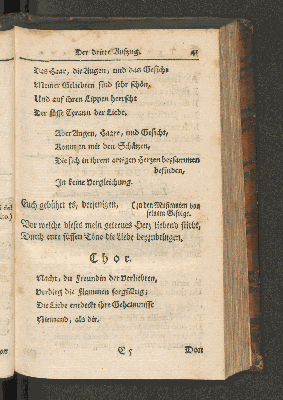 Der dritte Aufzug. 41
Das Haar, die Augen, und das Gesicht
Meiner Geliebten sind sehr schön,
Und auf ihren Lippen herrscht
Der süsse Tyrann der Liebe.
Aber Augen, Haare, und Gesicht,
Kommen mit den Schätzen,
Die sich in ihrem artigen Herzen beysammen
befinden,
In keine Vergleichung.
Euch gebührt es, derjenigen, (Zu den Musicanten von
seinem Gefolge.
Vor welche dieses mein getreues Herz liebend stirbt,
Durch eure süssen Töne die Liebe beyzubringen.
Chor.
Nacht, du Freundin der Verliebten,
Verbirg die Flammen sorgfältig;
Die Liebe entdeckt ihre Geheimnisse
Niemand, als dir.
C 5 Don